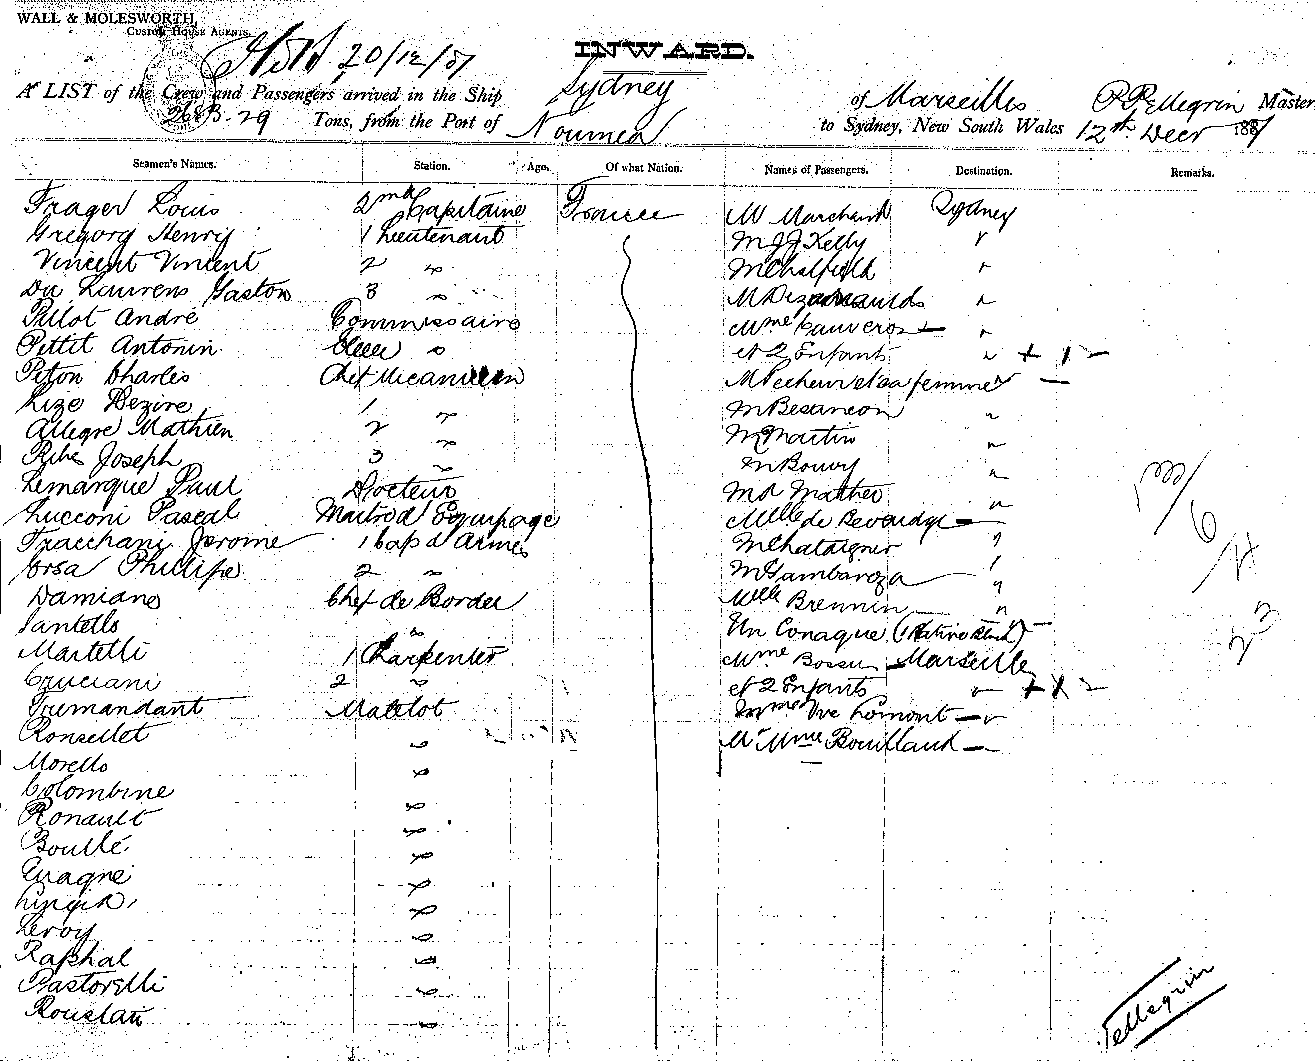 WALL & MOLESWORTH,
CUSTOM HOUSE AGENTS.
20/12/87
INWARD.
A LIST of the Crew and Passengers arrived in the Ship Sydney of Marseilles P Pellegrin Master
Tons, from the Port of Noumea to Sydney, New South Wales 12th Decr 1887
Seamen's Names. Station. Age. Of what Nation. Names of Passengers. Destination. Remarks.
Frager Louis 2nd Capitaine France M Marchand Sydney
Gregory Henry 1 Lieutenant M J J Kelly "
Vincent Vincent 2 " M Chatfield "
Du Laurens Gaston 3 " "
Pillot André Commissaire Mme "
Pettit Antonin " et 2 Enfants "
Peton Charles Chef Mecanicien M Pecheur et sa femme "
Lize Dezire 1 " M Besancon "
Allegre Mathieu 2 " M Martin "
Ribes Joseph 3 " M Boury "
Lemarque Paul Docteur Mather "
Lucconi Pascal Maitre d Equipage Melle de Beverdye
Fracchani Jerome 1 Cap d Armes M Chataigner "
Orsa Phillipe 2 " M Gambaroza "
Damiano Chef de Bordee Melle Brennin "
Santelli " Un Conaque (Native Black)
Martelli 1 Charpentier Mme Bossu Marseille
Cruciani 2 " et 2 Enfants "
Tremandant Matelot Mme Vve Lomont "
Ronsellet " Mr Mme Bouilland
Morello "
Colombine "
Ronault "
Boullé "
"
"
Leroy "
Raphal "
Pastorelli "
Roustan "
Pellegrin